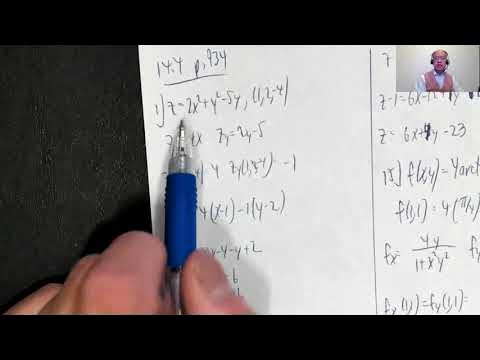 14.4 p. 934
1.) z=2x²+y²-5y, (1,2,-4)
x zy=2y-5
4 zy(1,2,-4) -1
4(x-1)-1(y-2)
-4-y+2
6
z-1=6x-12
z= 6x+4y-23
15.) f(x,y)=4arct
f(1,1)=4(π/4)
fx= 4y/(1+x²y²) fy
fx(1,1)=fy(1,1)=